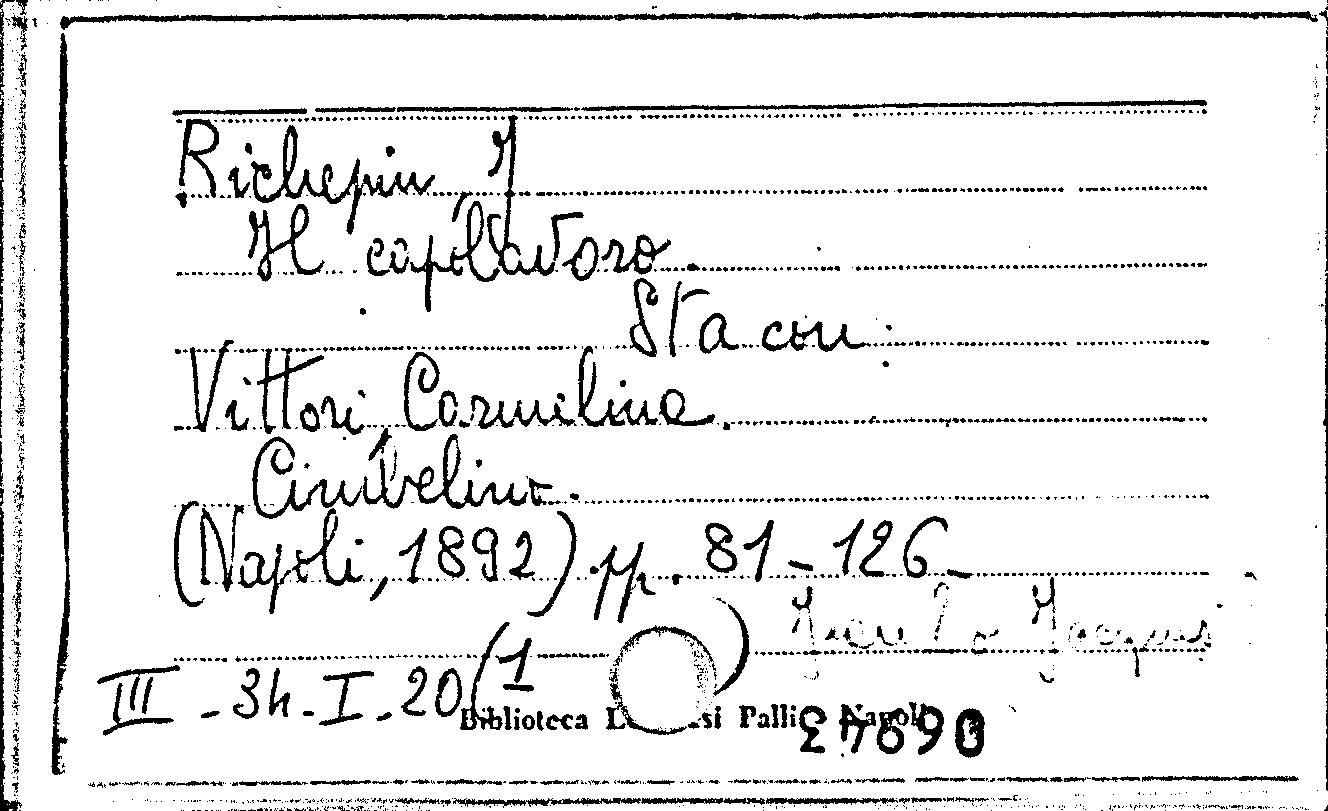 Richepin, J
Il capolavoro.
Sta con:
Vittori, Carmelina.
Cimbelino.
(Napoli, 1892) pp. 81-126-
Jean? o Jacques
III-34.I.20(1
Biblioteca L si Palli Napoli